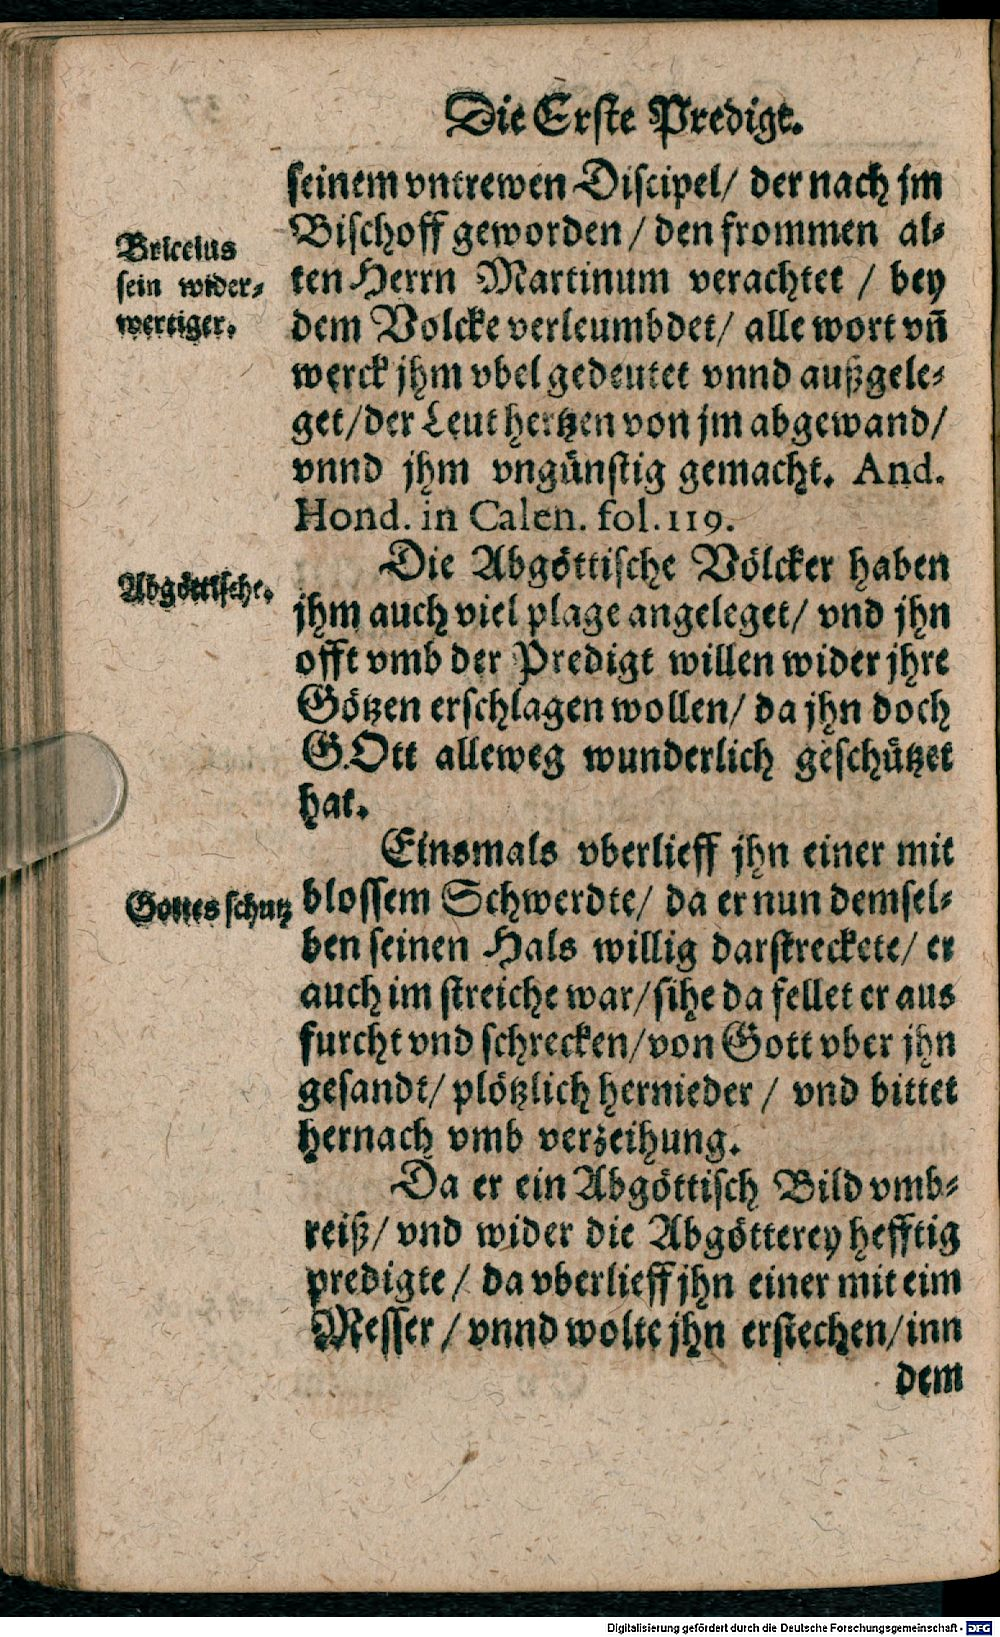 Die Erste Predigt.
seinem vntrewen Discipel/ der nach jm
Bischoff geworden / den frommen al-
ten Herrn Martinum verachtet / bey
dem Volcke verleumbdet/ alle wort vñ
werck jhm vbel gedeutet vnnd außgele-
get/der Leut hertzen von jm abgewand/
vnnd jhm vngünstig gemacht. And.
Hond. in Calen. fol.119.
Briceius
sein wider-
wertiger.
Die Abgöttische Völcker haben
jhm auch viel plage angeleget/ vnd jhn
offt vmb der Predigt willen wider jhre
Götzen erschlagen wollen/ da jhn doch
GOtt alleweg wunderlich geschützet
hat.
Abgöttische.
Einsmals vberlieff jhn einer mit
blossem Schwerdte/ da er nun demsel-
ben seinen Hals willig darstreckete/ er
auch im streiche war/sihe da fellet er aus
furcht vnd schrecken/von Gott vber jhn
gesandt/ plötzlich hernieder / vnd bittet
hernach vmb verzeihung.
Gottes schutz
Da er ein Abgöttisch Bild vmb-
reiß/ vnd wider die Abgötterey hefftig
predigte / da vberlieff jhn einer mit eim
Messer / vnnd wolte jhn erstechen/inn
dem
Digitalisierung gefördert durch die Deutsche Forschungsgemeinschaft - DFG